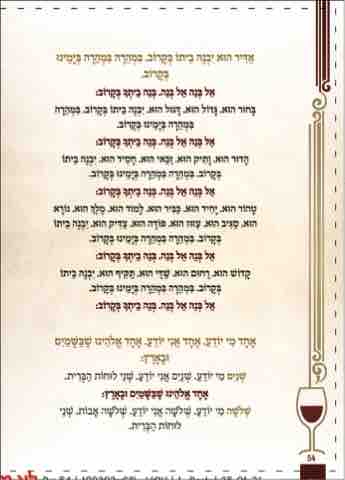 אַדִּיר הוּא יִבְנֶה בֵיתוֹ בְּקָרוֹב. בִּמְהֵרָה בִּמְהֵרָה בְּיָמֵינוּ
בְּקָרוֹב.
אֵל בְּנֵה אֵל בְּנֵה. בְּנֵה בֵיתְךָ בְּקָרוֹב:
בָּחוּר הוּא. גָּדוֹל הוּא. דָּגוּל הוּא. יִבְנֶה בֵיתוֹ בְּקָרוֹב. בִּמְהֵרָה
בִּמְהֵרָה בְּיָמֵינוּ בְּקָרוֹב.
אֵל בְּנֵה אֵל בְּנֵה. בְּנֵה בֵיתְךָ בְּקָרוֹב:
הָדוּר הוּא. וָתִיק הוּא. זַכַּאי הוּא. חָסִיד הוּא. יִבְנֶה בֵיתוֹ
בְּקָרוֹב. בִּמְהֵרָה בִּמְהֵרָה בְּיָמֵינוּ בְּקָרוֹב.
אֵל בְּנֵה אֵל בְּנֵה. בְּנֵה בֵיתְךָ בְּקָרוֹב:
טָהוֹר הוּא. יָחִיד הוּא. כַּבִּיר הוּא. לָמוּד הוּא. מֶלֶךְ הוּא. נוֹרָא
הוּא. סַגִּיב הוּא. עִזּוּז הוּא. פּוֹדֶה הוּא. צַדִּיק הוּא. יִבְנֶה בֵיתוֹ
בְּקָרוֹב. בִּמְהֵרָה בִּמְהֵרָה בְּיָמֵינוּ בְּקָרוֹב.
אֵל בְּנֵה אֵל בְּנֵה. בְּנֵה בֵיתְךָ בְּקָרוֹב:
קָדוֹשׁ הוּא. רַחוּם הוּא. שַׁדַּי הוּא. תַּקִּיף הוּא. יִבְנֶה בֵיתוֹ
בְּקָרוֹב. בִּמְהֵרָה בִּמְהֵרָה בְּיָמֵינוּ בְּקָרוֹב.
אֵל בְּנֵה אֵל בְּנֵה. בְּנֵה בֵיתְךָ בְּקָרוֹב:
אֶחָד מִי יוֹדֵעַ. אֶחָד אֲנִי יוֹדֵעַ. אֶחָד אֱלֹהֵינוּ שֶׁבַּשָּׁמַיִם
וּבָאָרֶץ:
שְׁנַיִם מִי יוֹדֵעַ. שְׁנַיִם אֲנִי יוֹדֵעַ. שְׁנֵי לוּחוֹת הַבְּרִית.
אֶחָד אֱלֹהֵינוּ שֶׁבַּשָּׁמַיִם וּבָאָרֶץ:
שְׁלֹשָׁה מִי יוֹדֵעַ. שְׁלֹשָׁה אֲנִי יוֹדֵעַ. שְׁלֹשָׁה אָבוֹת. שְׁנֵי
לוּחוֹת הַבְּרִית.
54